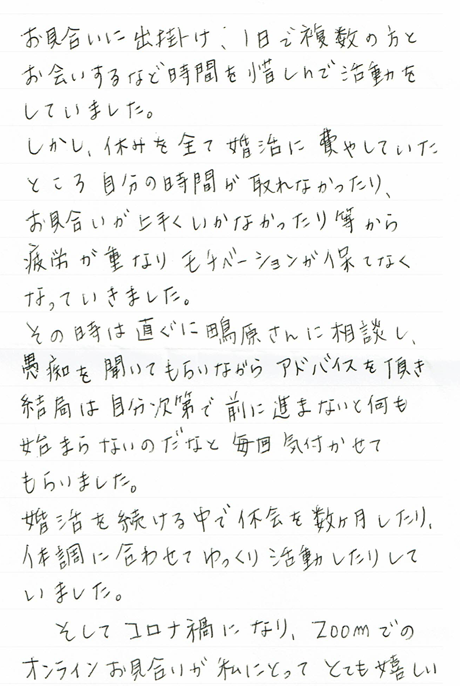 お見合いに出掛け、1日で複数の方と
お会いするなど時間を惜しんで活動を
していました。
しかし、休みを全て婚活に費やしていた
ところ自分の時間が取れなかったり、
お見合いが上手くいかなかったり等から
疲労が重なりモチベーションが保てなく
なっていきました。
その時は直ぐに鴫原さんに相談し、
愚痴を聞いてもらいながらアドバイスを頂き
結局は自分次第で前に進まないと何も
始まらないのだなと毎回気付かせて
もらいました。
婚活を続ける中で休会を数ヶ月したり、
体調に合わせてゆっくり活動したりして
いました。
そしてコロナ禍になり、ZOOMでの
オンラインお見合いが私にとってとても嬉しい